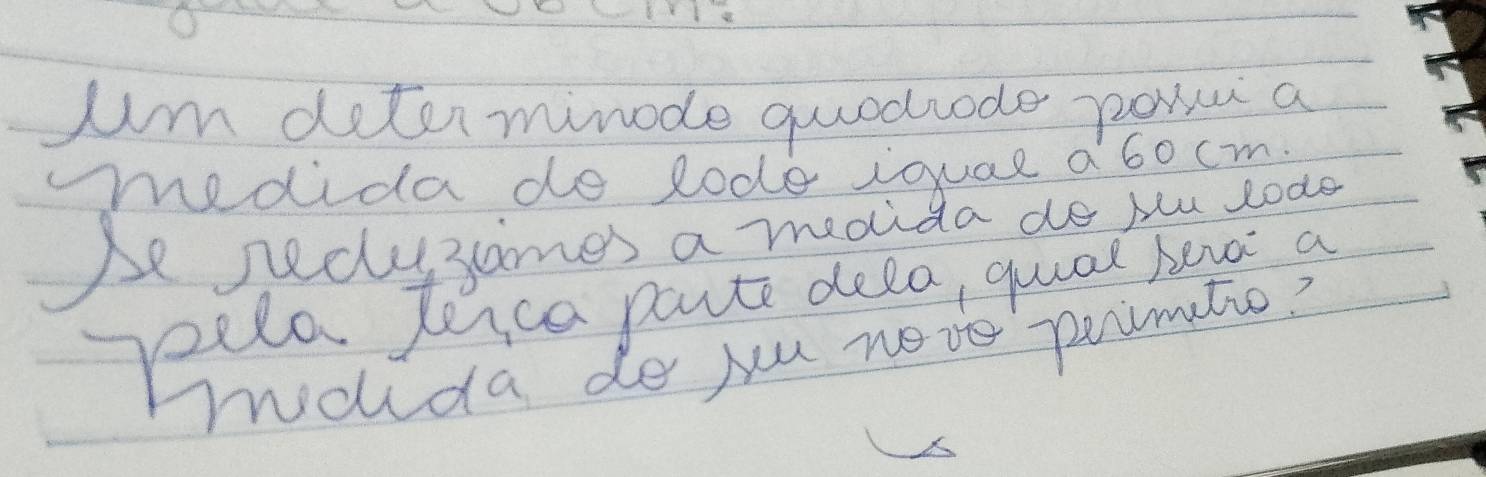 cm.
Um determinado quadrado possui a
medida do lado igual a 60 cm.
Se reduzirmos a medida do seu lado
pela terça parte dela, qual será a
medida do seu novo perimetro?